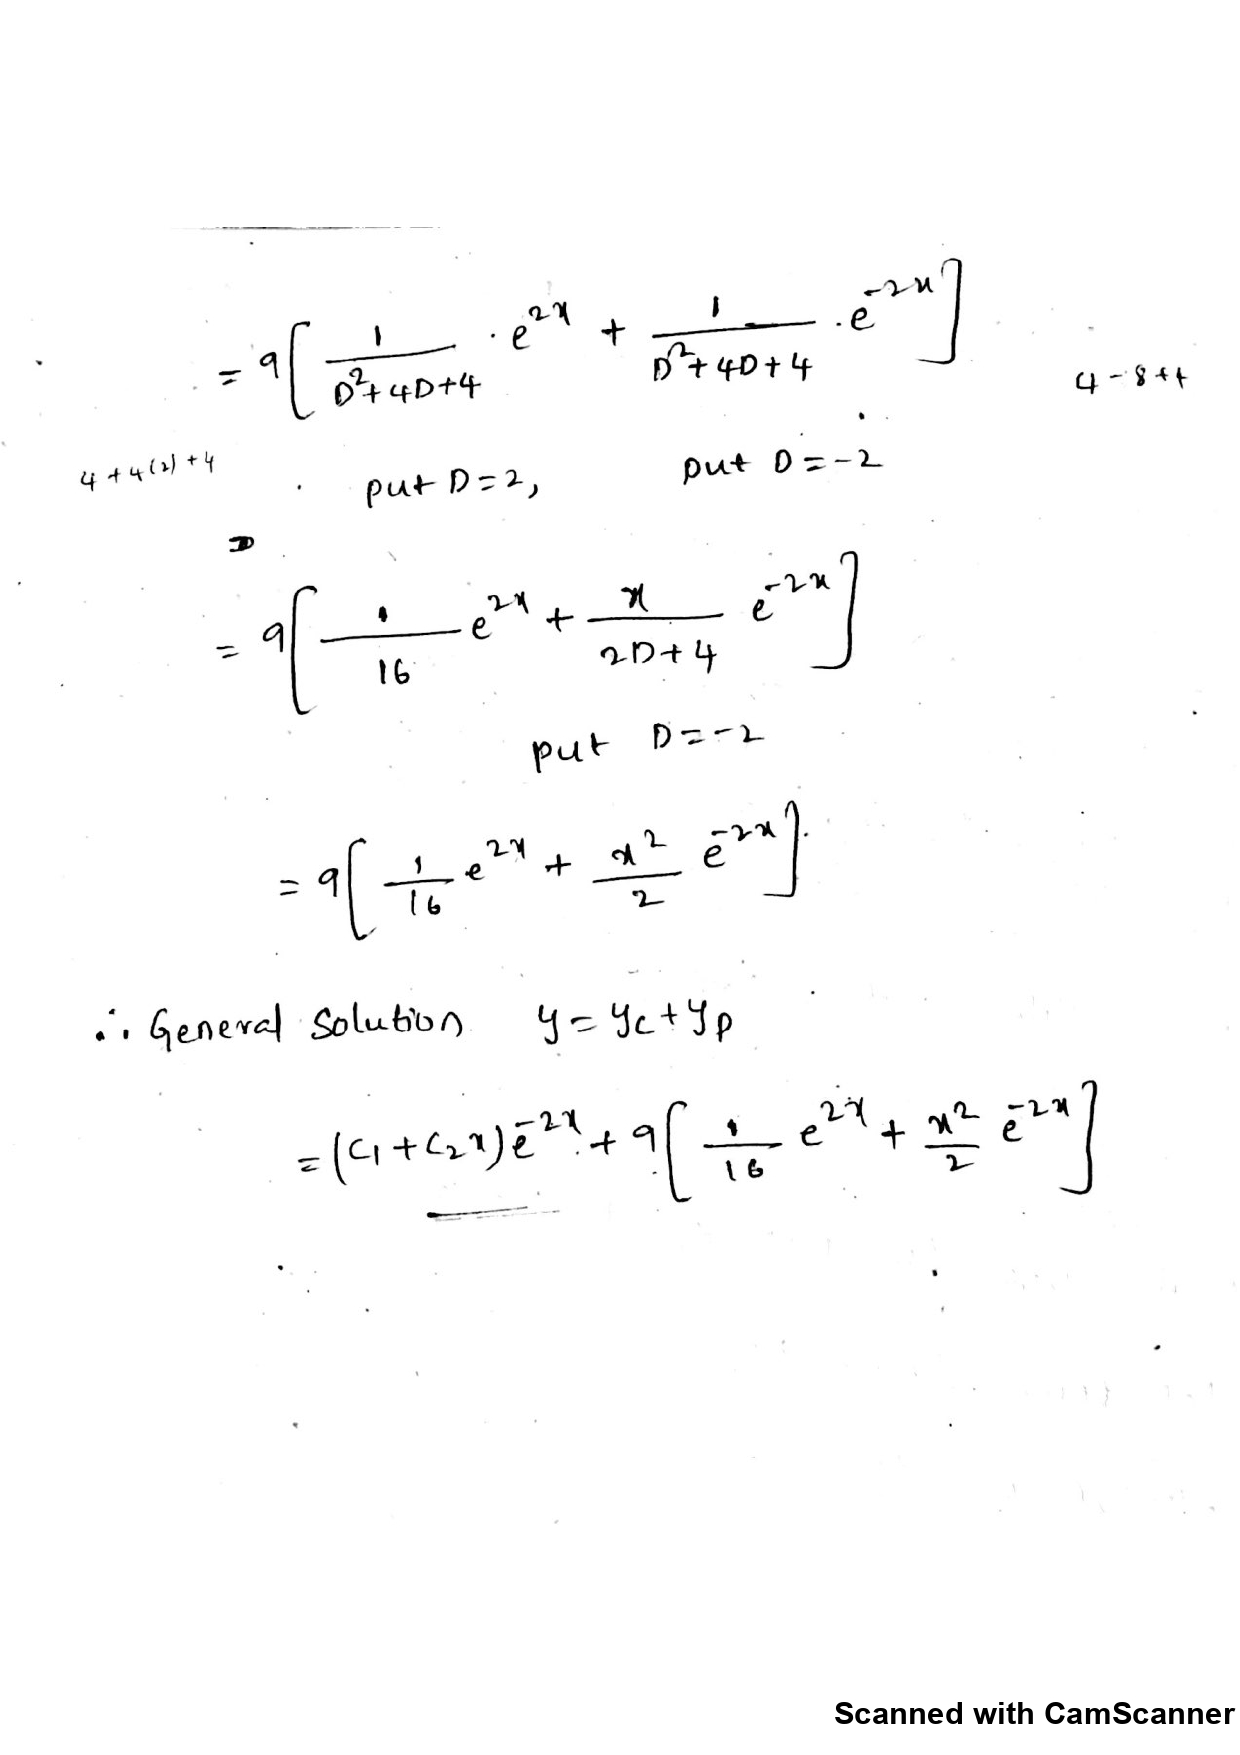 = 9[ 1/(D²+4D+4) · e^{2x} + 1/(D²+4D+4) · e^{-2x} ]
4 - 8 + 4
4 + 4(2) + 4
put D = 2, put D = -2
= 9[ 1/16 e^{2x} + x/(2D+4) e^{-2x} ]
put D = -2
= 9[ 1/16 e^{2x} + x²/2 e^{-2x} ].
∴ General Solution y = y_c + y_p
= (c₁ + c₂x) e^{-2x} + 9[ 1/16 e^{2x} + x²/2 e^{-2x} ]
Scanned with CamScanner